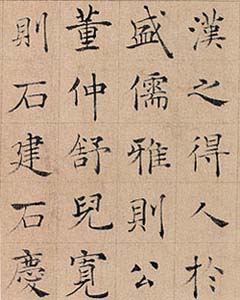 漢之得人於
盛儒雅則公
董仲舒兒寬
則石建石慶